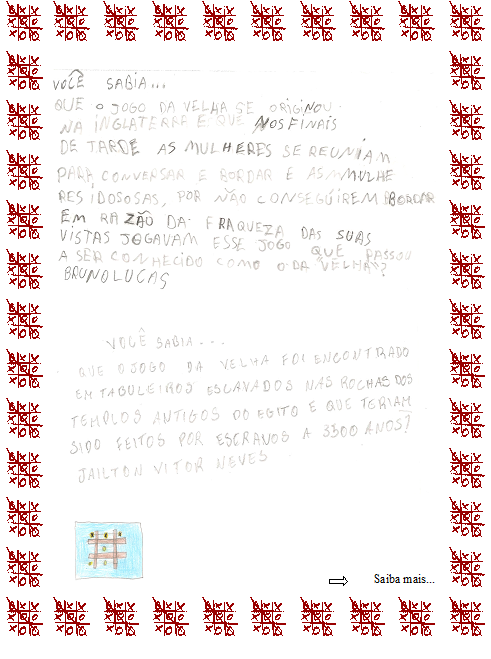 VOCÊ SABIA...
QUE O JOGO DA VELHA SE ORIGINOU
NA INGLATERRA E QUE NOS FINAIS
DE TARDE AS MULHERES SE REUNIAM
PARA CONVERSAR E BORDAR E AS MULHE
RES IDOSOSAS, POR NÃO CONSEGUIREM BORDAR
EM RAZÃO DA FRAQUEZA DAS SUAS
VISTAS JOGAVAM ESSE JOGO QUE PASSOU
A SER CONHECIDO COMO O DA VELHA?
BRUNO LUCAS
VOCÊ SABIA...
QUE O JOGO DA VELHA FOI ENCONTRADO
EM TABULEIROS ESCAVADOS NAS ROCHAS DOS
TEMPLOS ANTIGOS DO EGITO E QUE TERIAM
SIDO FEITOS POR ESCRAVOS A 3300 ANOS?
JAILTON VITOR NEVES
Saiba mais...